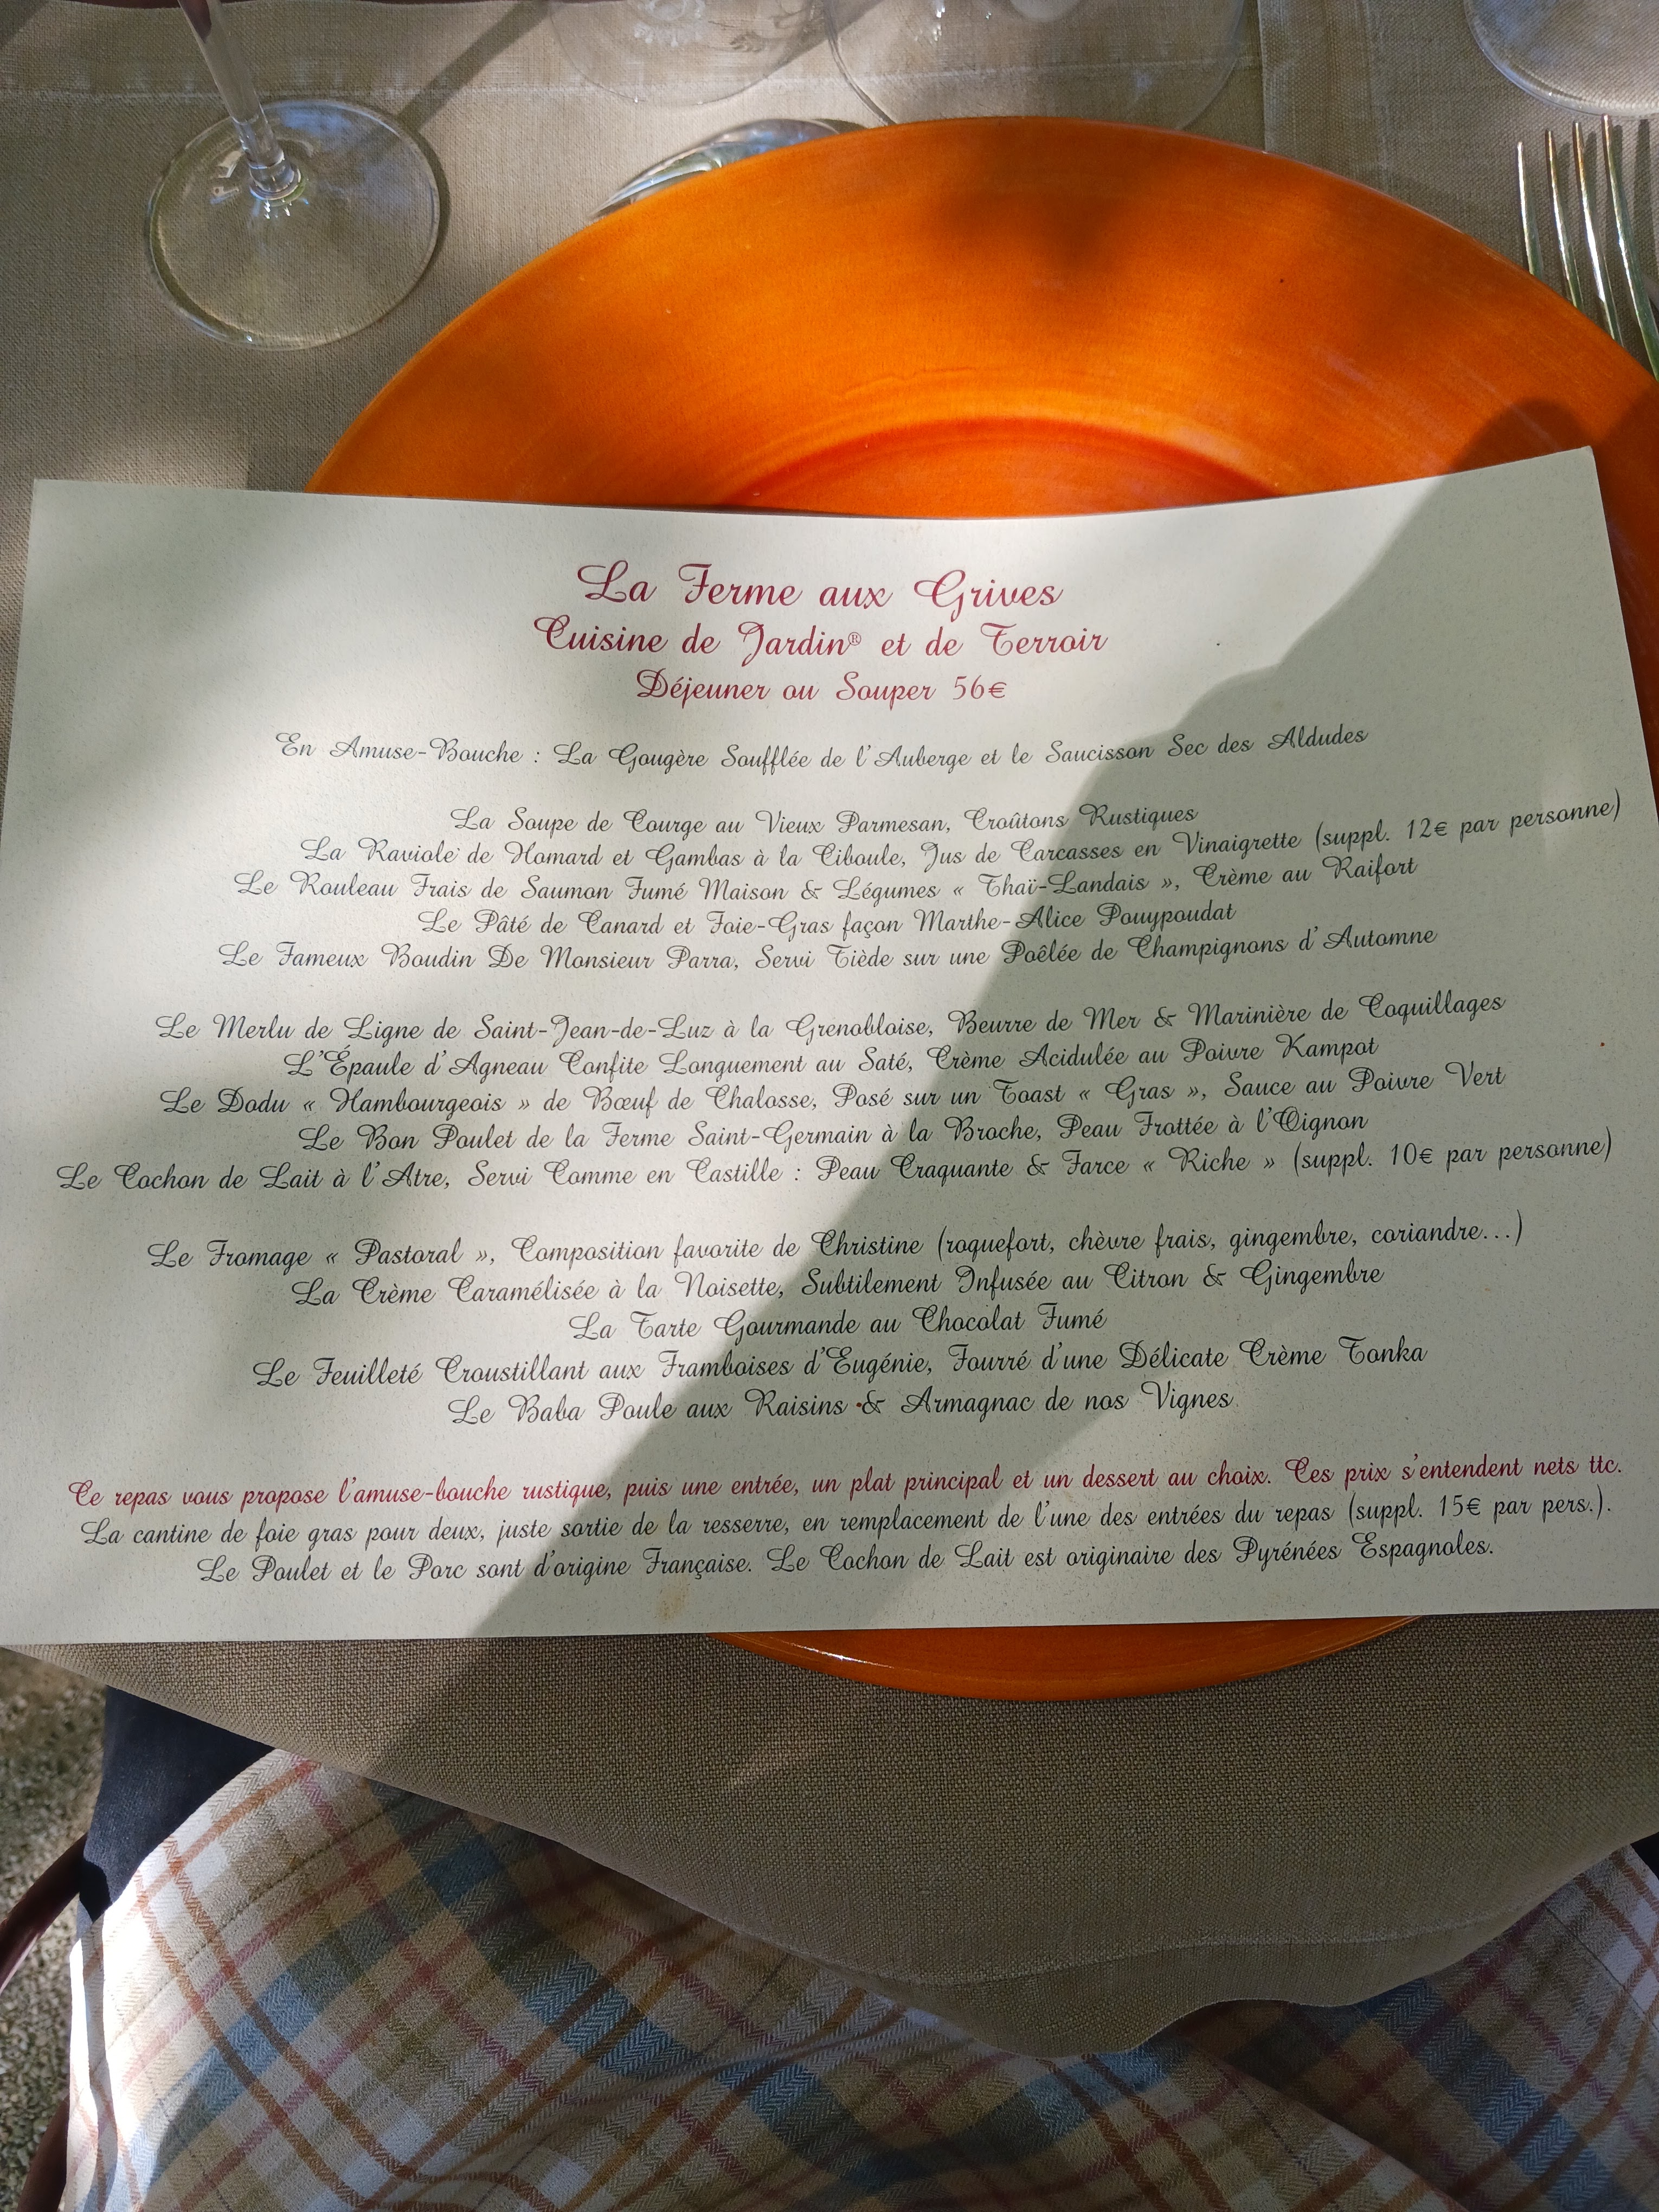 La Ferme aux Grives
Cuisine de Jardin® et de Terroir
Déjeuner ou Souper 56€
En Amuse-Bouche : La Gougère Soufflée de l'Auberge et le Saucisson Sec des Aldudes
La Soupe de Courge au Vieux Parmesan, Croûtons Rustiques
La Raviole de Homard et Gambas à la Ciboule, Jus de Carcasses en Vinaigrette (suppl. 12€ par personne)
Le Rouleau Frais de Saumon Fumé Maison & Légumes « Thaï-Landais », Crème au Raifort
Le Pâté de Canard et Foie-Gras façon Marthe-Alice Pouypoudat
Le Fameux Boudin De Monsieur Parra, Servi Tiède sur une Poêlée de Champignons d'Automne
Le Merlu de Ligne de Saint-Jean-de-Luz à la Grenobloise, Beurre de Mer & Marinière de Coquillages
L'Épaule d'Agneau Confite Longuement au Saté, Crème Acidulée au Poivre Kampot
Le Dodu « Hambourgeois » de Bœuf de Chalosse, Posé sur un Toast « Gras », Sauce au Poivre Vert
Le Bon Poulet de la Ferme Saint-Germain à la Broche, Peau Frottée à l'Oignon
Le Cochon de Lait à l'Atre, Servi Comme en Castille : Peau Craquante & Farce « Riche » (suppl. 10€ par personne)
Le Fromage « Pastoral », Composition favorite de Christine (roquefort, chèvre frais, gingembre, coriandre...)
La Crème Caramélisée à la Noisette, Subtilement Infusée au Citron & Gingembre
La Tarte Gourmande au Chocolat Fumé
Le Feuilleté Croustillant aux Framboises d'Eugénie, Fourré d'une Délicate Crème Tonka
Le Baba Poule aux Raisins & Armagnac de nos Vignes
Ce repas vous propose l'amuse-bouche rustique, puis une entrée, un plat principal et un dessert au choix. Ces prix s'entendent nets ttc.
La cantine de foie gras pour deux, juste sortie de la resserre, en remplacement de l'une des entrées du repas (suppl. 15€ par pers.).
Le Poulet et le Porc sont d'origine Française. Le Cochon de Lait est originaire des Pyrénées Espagnoles.